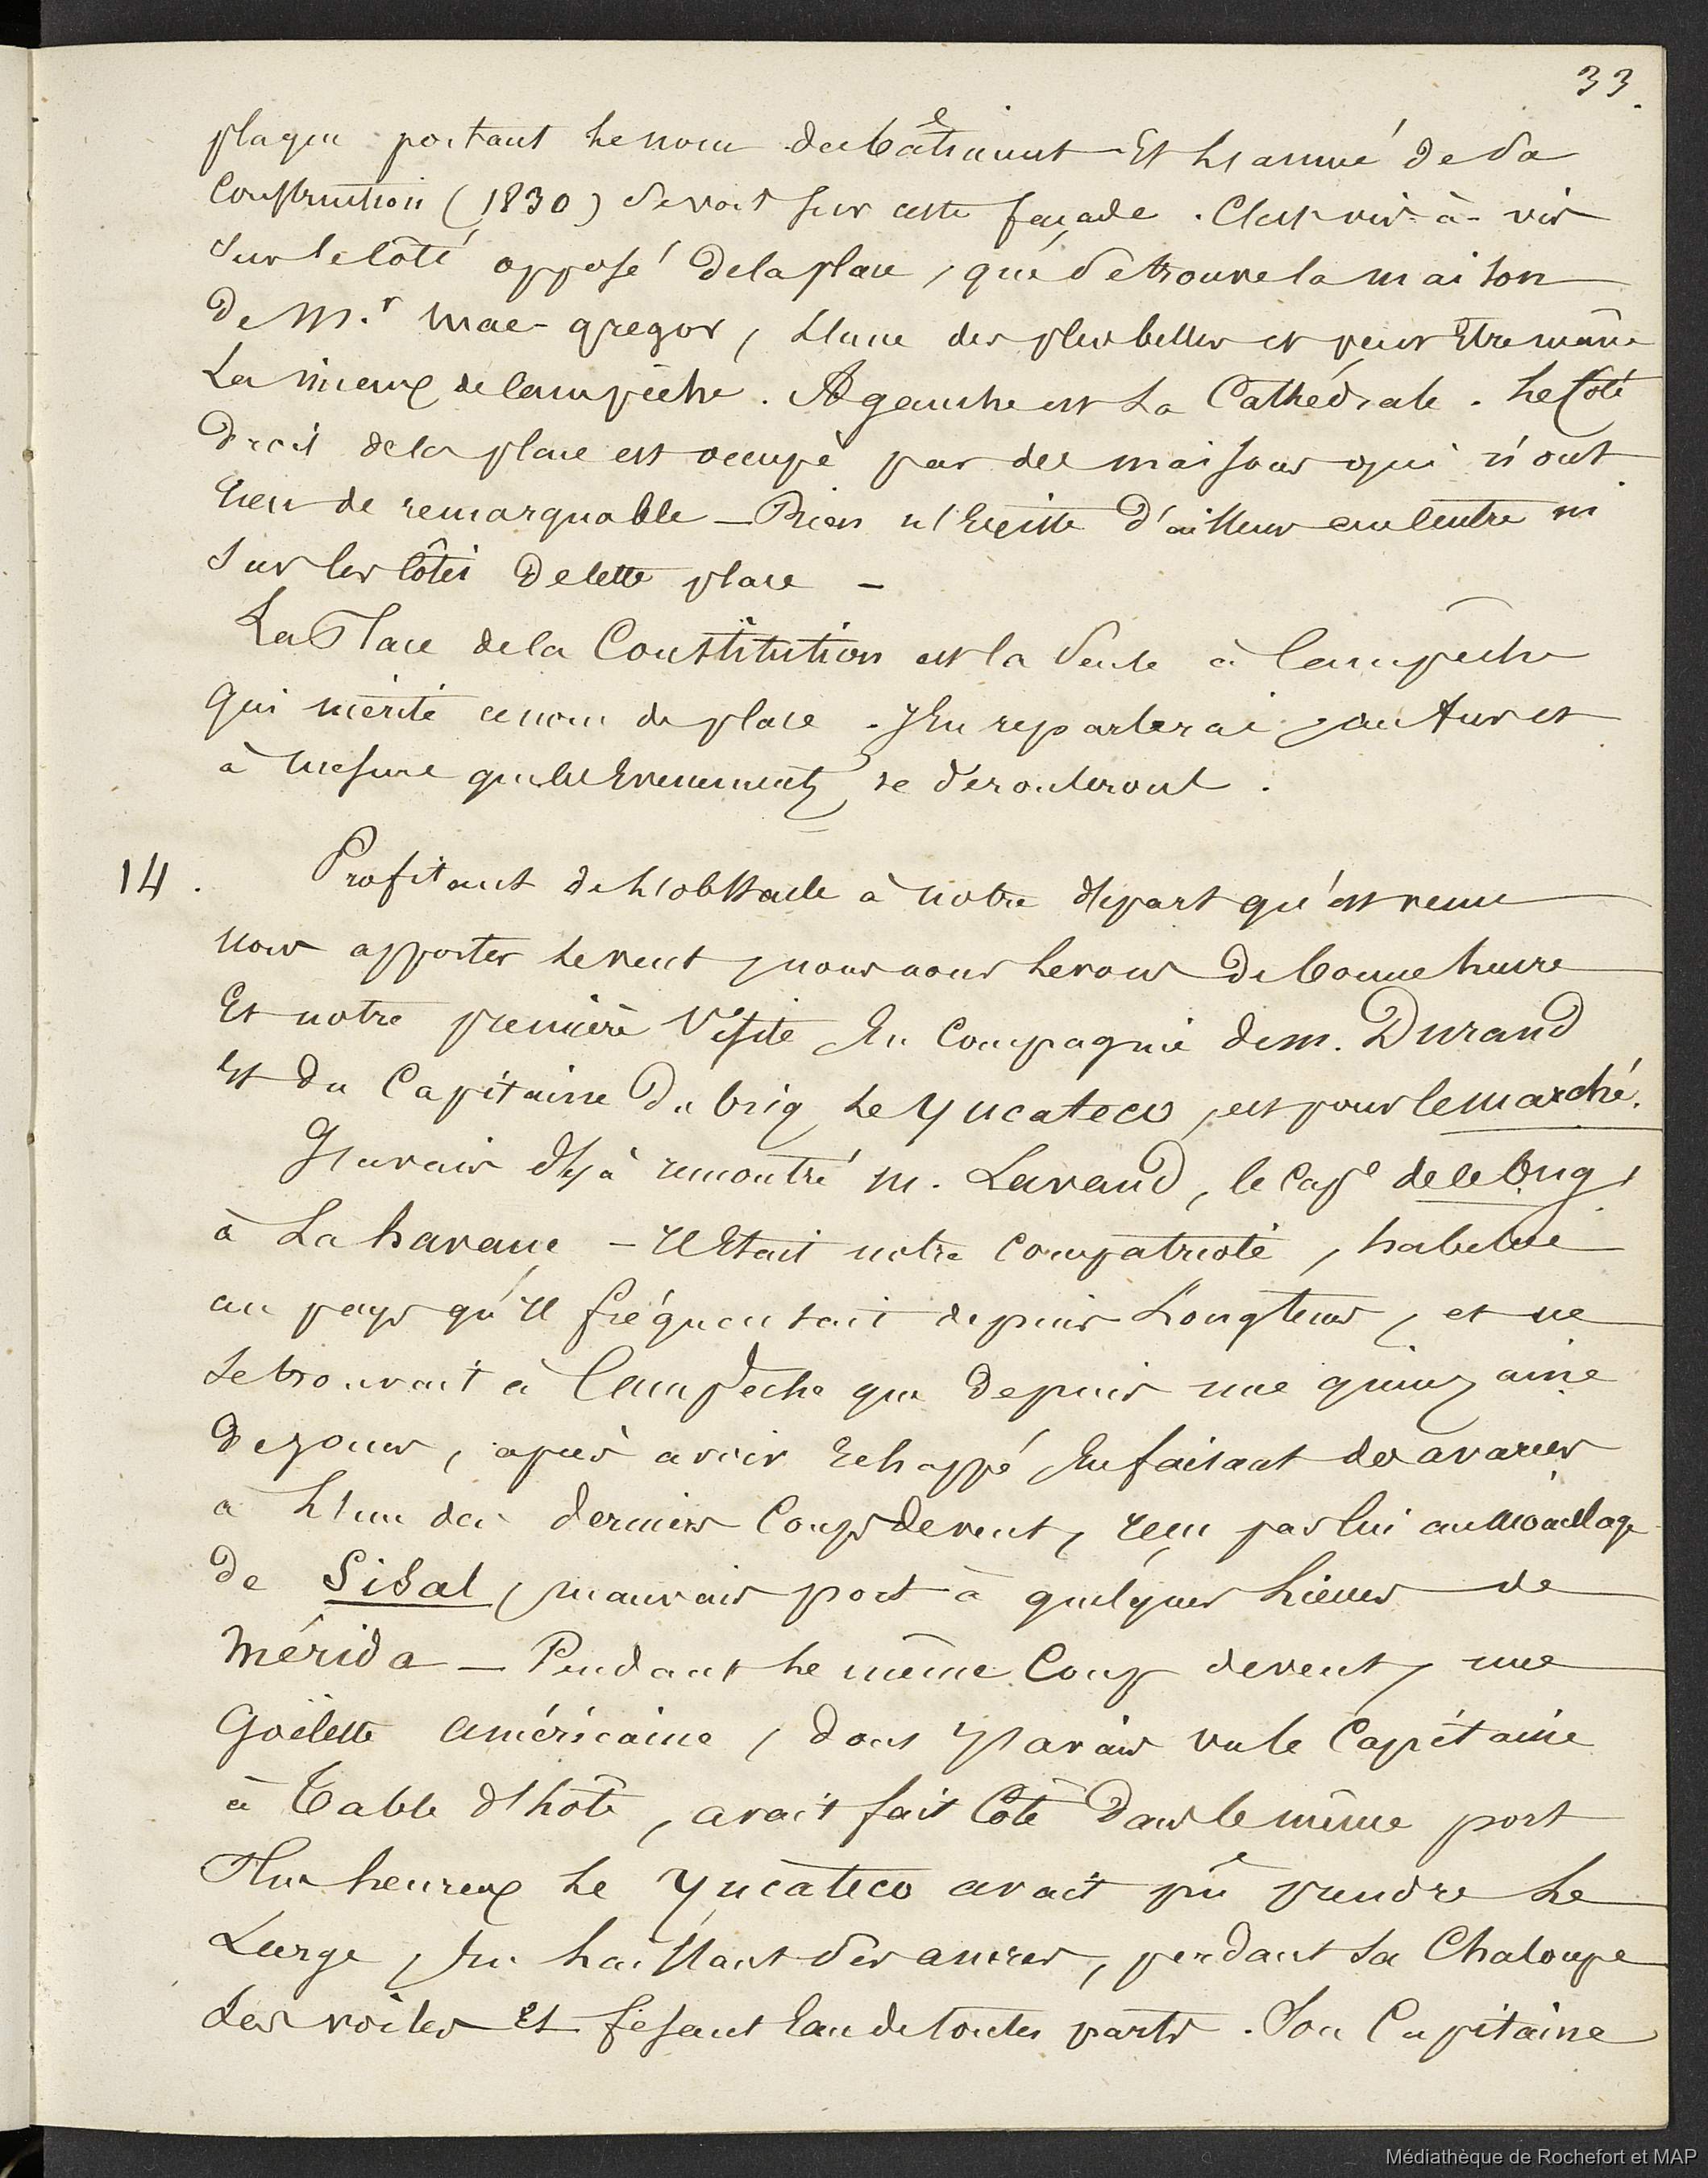 33.
plaque portant le nom du bâtiment et l'année de sa
construction (1830) se voit sur cette façade. C'est vis-à-vis
sur le côté opposé de la place, que se trouve la maison
de M.r Mac-gregor, l'une des plus belles et peut être même
la mieux de Campêche. A gauche est la Cathédrale. Le côté
droit de la place est occupé par des maisons qui n'ont
rien de remarquable — Rien n'existe d'ailleurs au centre ni
sur les côtés de cette place —
La Place de la Constitution est la seule à Campêche
qui mérite ce nom de place. J'en reparlerai, au fur et
à mesure que les Evenements se dérouleront.
14. Profitant de l'obstacle à notre départ qu'est venu
nous apporter le vent, nous nous levons de bonne heure
Et notre première Visite En Compagnie de m. Durand
Et du Capitaine du brig le yucateco, est pour le marché.
J'avais déjà rencontré m. Lavaud, le Cape de ce brig,
à La havane — Il Etait notre Compatriote, habitué
au pays qu'il fréquentait depuis Longtems, et ne
se trouvait à Campêche que depuis une quinzaine
de jours, après avoir Echappé En faisant des avaries
à l'un des derniers Coups de vent, reçu par lui au mouillage
de Sisal, mauvais port à quelques lieues de
Mérida — Pendant le même Coup de vent, une
Goëlette américaine, dont j'avais vu le Capitaine
à Table d'hôte, avait fait Côte dans le même port
Plus heureux le yucateco avait pû prendre le
Large, En laissant ses ancres, perdant sa Chaloupe
ses voiles Et fesant Eau de toutes parts. Son Capitaine
Médiathèque de Rochefort et MAP